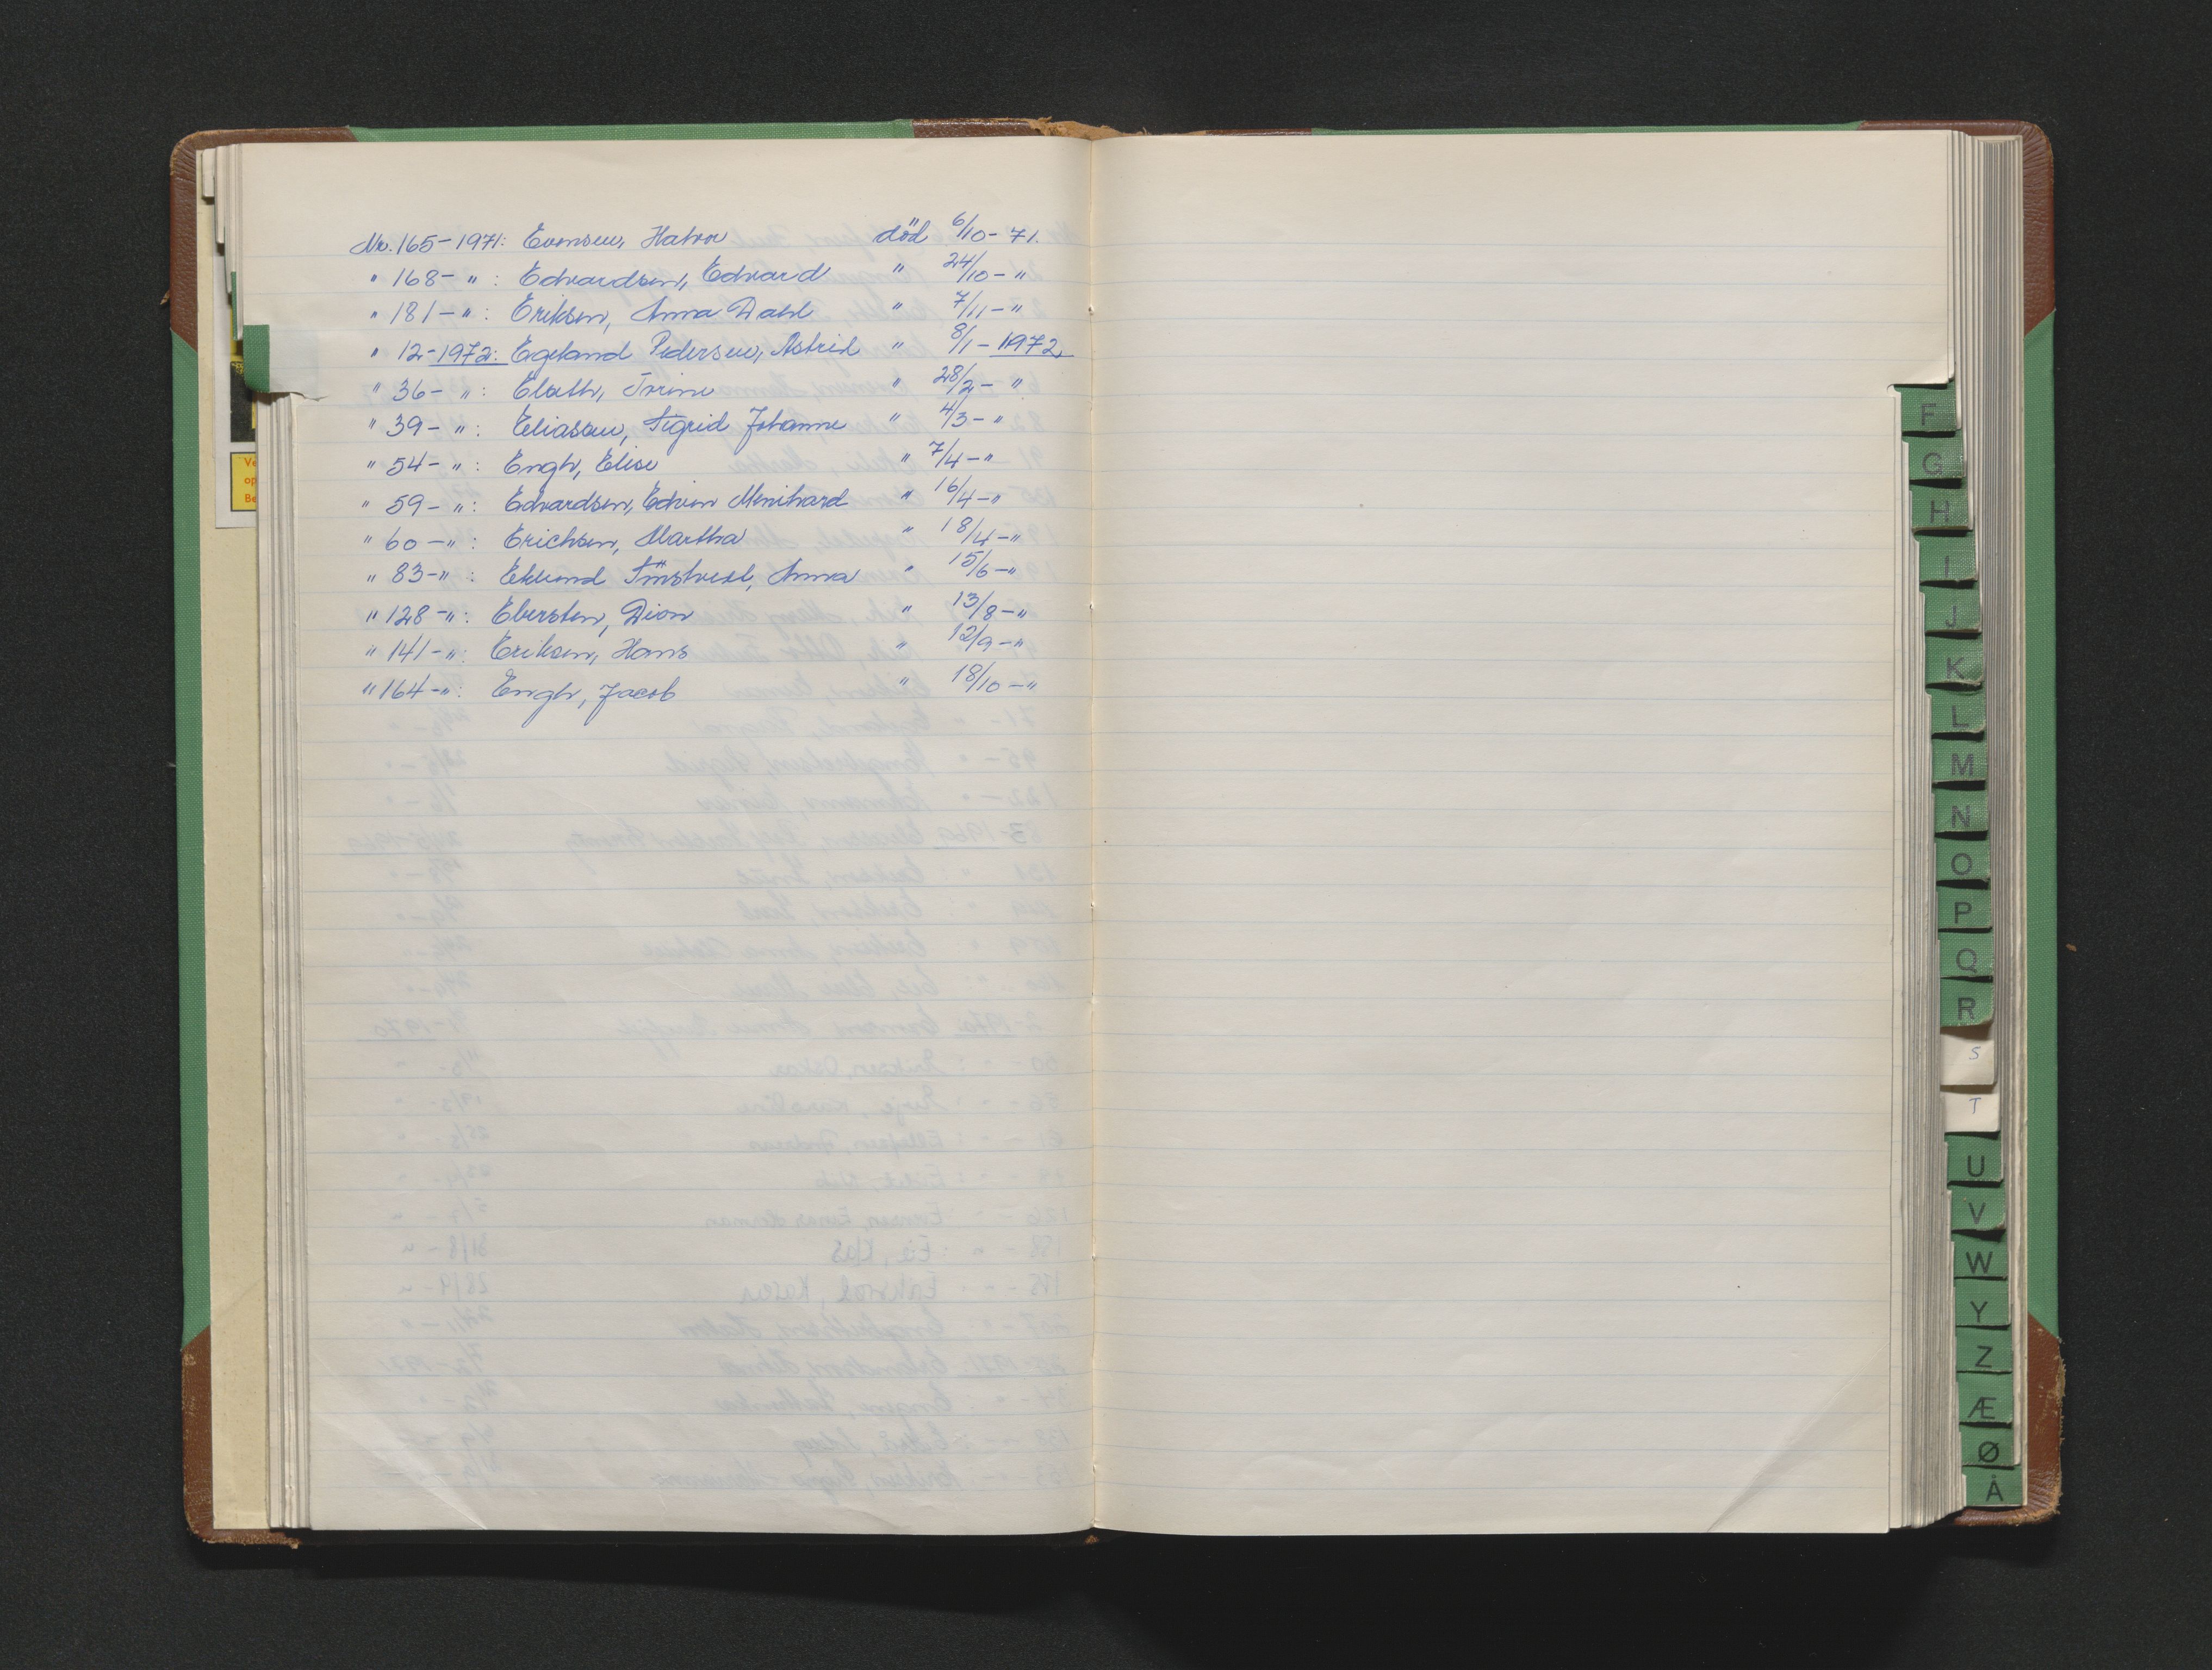 No. 165-1971: Evensen, Halvor död 6/10-71.
" 168- " : Edvardsen, Edvard " 24/10- "
" 181- " : Eriksen, Anna Dahl " 7/11- "
" 12-1972: Egeland Pedersen, Astrid " 8/1-1972
" 36- " : Elath, Trine " 28/2- "
" 39- " : Eliasen, Sigrid Johanne " 4/3- "
" 54- " : Engh, Elise " 7/4- "
" 59- " : Edvardsen, Edvin Menihard " 16/4- "
" 60- " : Erichsen, Martha " 18/4- "
" 83- " : Eklund Anna " 15/6- "
" 128- " : Ebersten, Dion " 13/8- "
" 141- " : Eriksen, Hans " 12/9- "
" 164- " : Engh, Jacob " 18/10- "
F
G
H
I
J
K
L
M
N
O
P
Q
R
S
T
U
V
W
Y
Z
Æ
Ø
Å